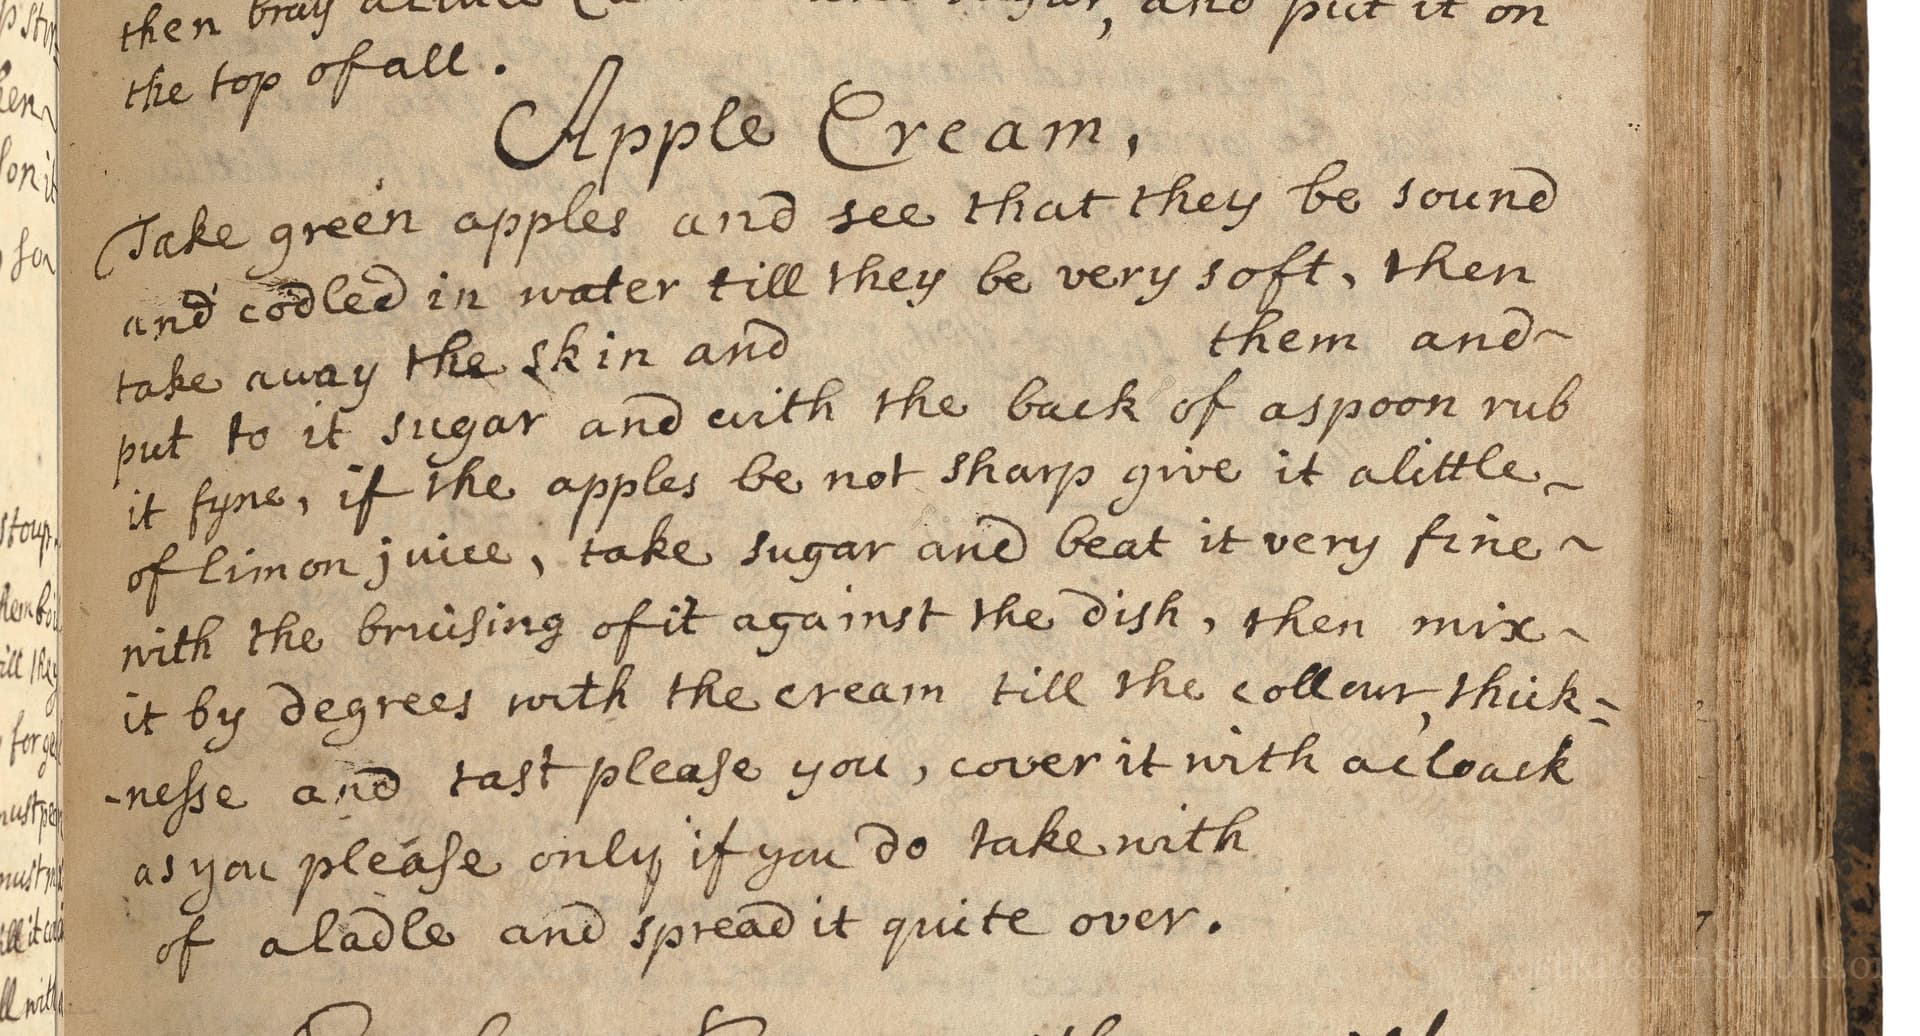 then bray sugar, and put it on
the top of all.
Apple Cream,
Take green apples and see that they be sound
and codled in water till they be very soft, then
take away the skin and them and~
put to it sugar and with the back of aspoon rub
it fyne, if the apples be not sharp give it alittle~
of limon juice, take sugar and beat it very fine~
with the bruising of it against the dish, then mix~
it by degrees with the cream till the collour, thick=
-neſse and tast pleaſe you, cover it with acloack
as you pleaſe only if you do take with
of aladle and spread it quite over.